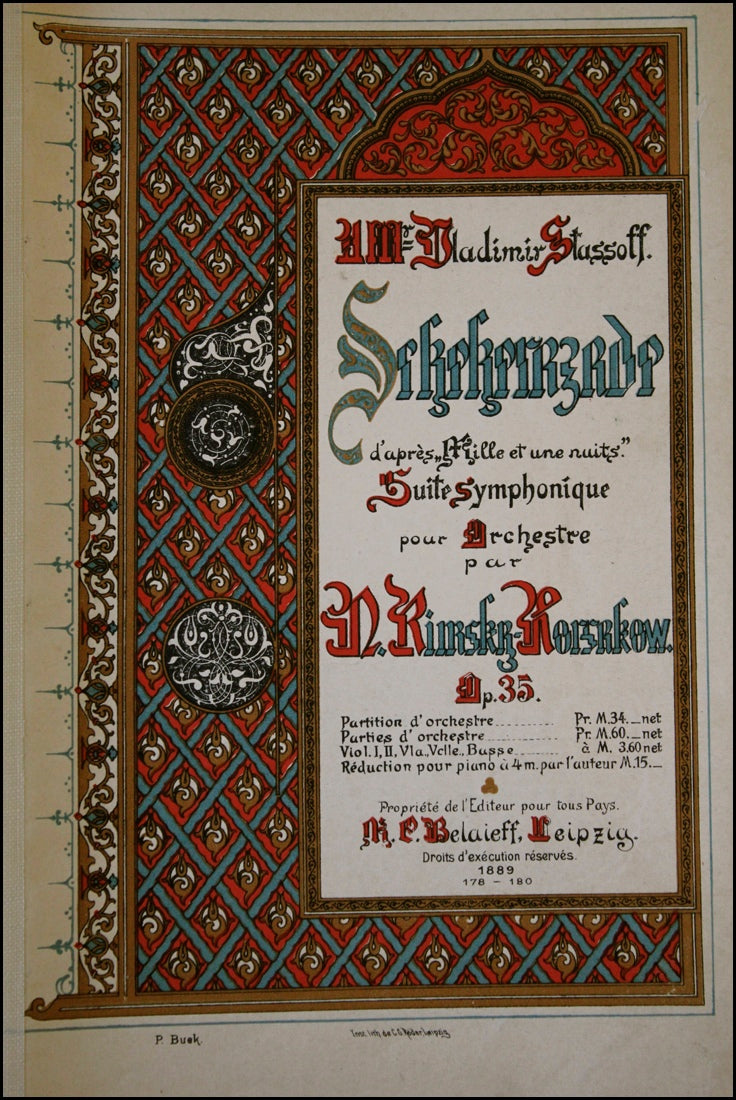 A Mr Vladimir Stassoff.
Scheherazade
d'après „Mille et une nuits."
Suite symphonique
pour Orchestre
par
N. Rimsky-Korsakow.
Op. 35.
Partition d'orchestre Pr. M. 34._ net
Parties d'orchestre Pr. M. 60._ net
Viol. I, II, Vla., Vclle., Basse à M. 3.60 net
Réduction pour piano à 4 m. par l'auteur M. 15._
Propriété de l'Editeur pour tous Pays.
M. P. Belaieff, Leipzig.
Droits d'exécution réservés.
1889
178 – 180
P. Buek.
Imp. lith. de C. G. Röder, Leipzig